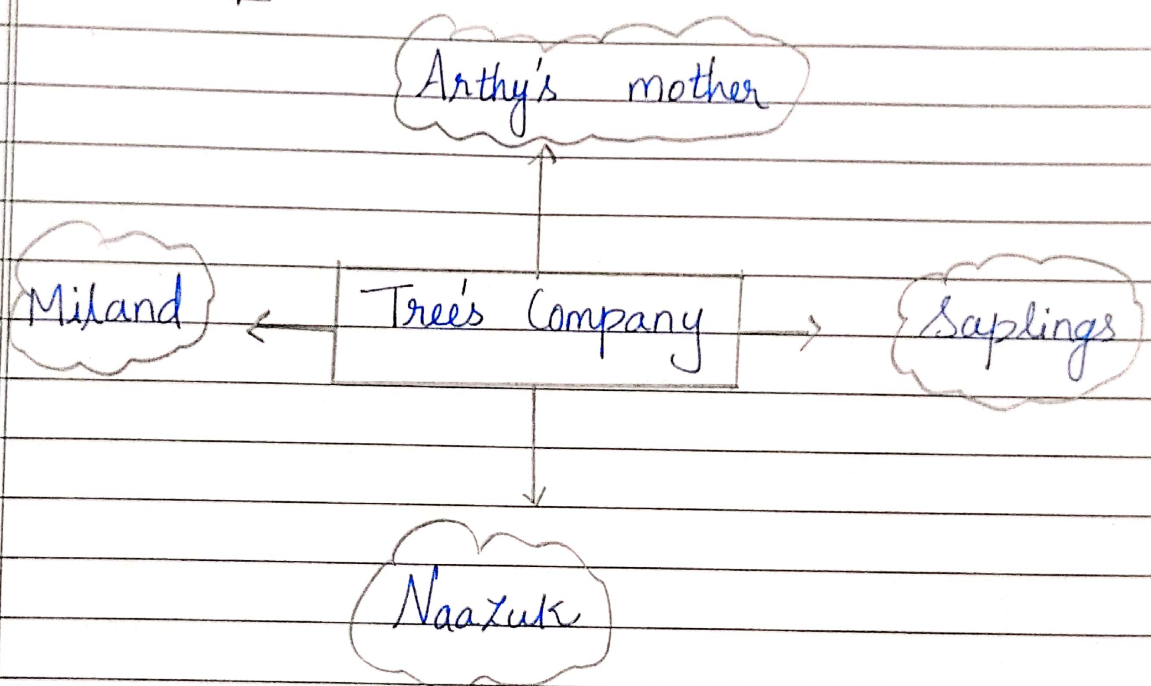 Arthy's mother
Miland
Tree's Company
Saplings
Naazuk